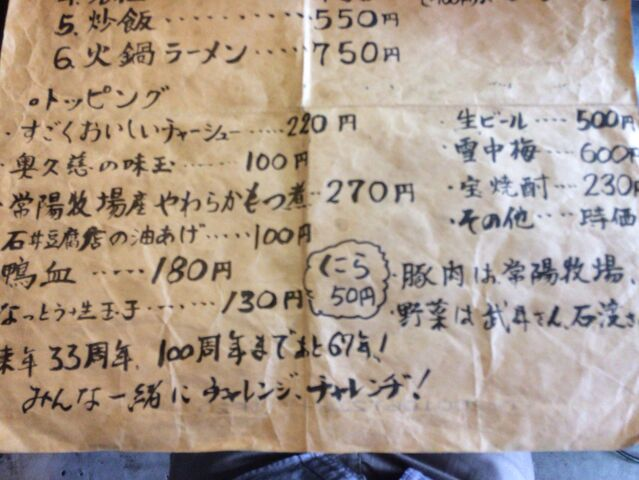 5. 炒飯 ・・・・・・・・・ 550円
6. 火鍋ラーメン ・・・・ 750円
○トッピング
・すごくおいしいチャーシュー ・・・・ 220円
・奥久慈の味玉 ・・・・・ 100円
・常陽牧場産やわらかもつ煮 ・・ 270円
石井豆腐店の油あげ ・・・・ 100円
鴨血 ・・・・・ 180円
なっとう+生玉子 ・・・・・・・ 130円
にら
50円
・生ビール ・・・・ 500円
・雪中梅 ・・・・ 600円
・宝焼酎 ・・・ 230円
・その他 ・・・・ 時価
・豚肉は、常陽牧場、
・野菜は武井さん、石濱さ
来年33周年、100周年まであと67年!
みんな一緒にチャレンジ、チャレンヂ!